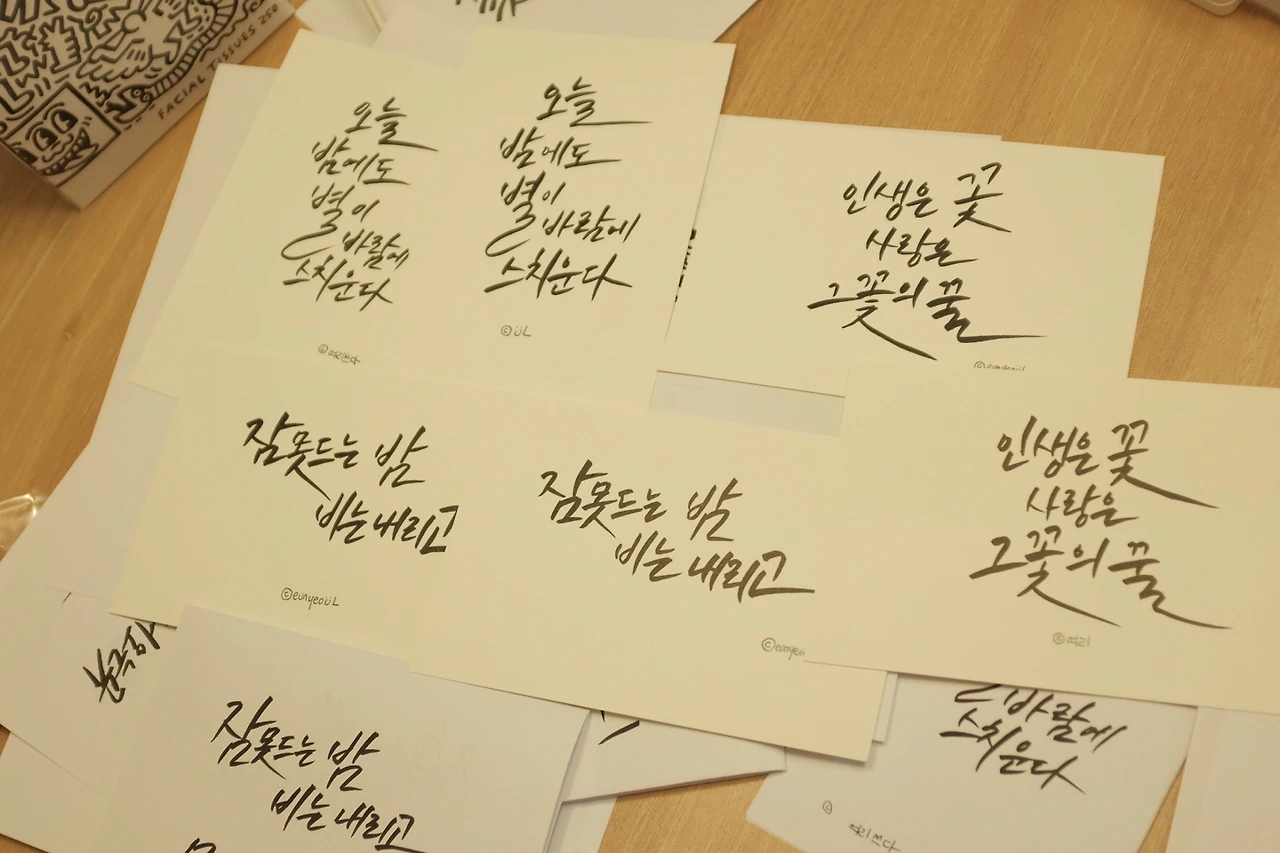 FACIAL TISSUES 250
오늘
밤에도
별이
바람에
스치운다
©여리쓰다
오늘
밤에도
별이
바람에
스치운다
©UL
인생은 꽃
사랑은
그 꽃의 꿀
잠 못드는 밤
비는 내리고
©eunyeoUL
잠 못드는 밤
비는 내리고
©eunyeo
인생은 꽃
사랑은
그 꽃의 꿀
©여리
잠 못드는 밤
비는 내리고
바람에
스치운다
©
여리쓰다